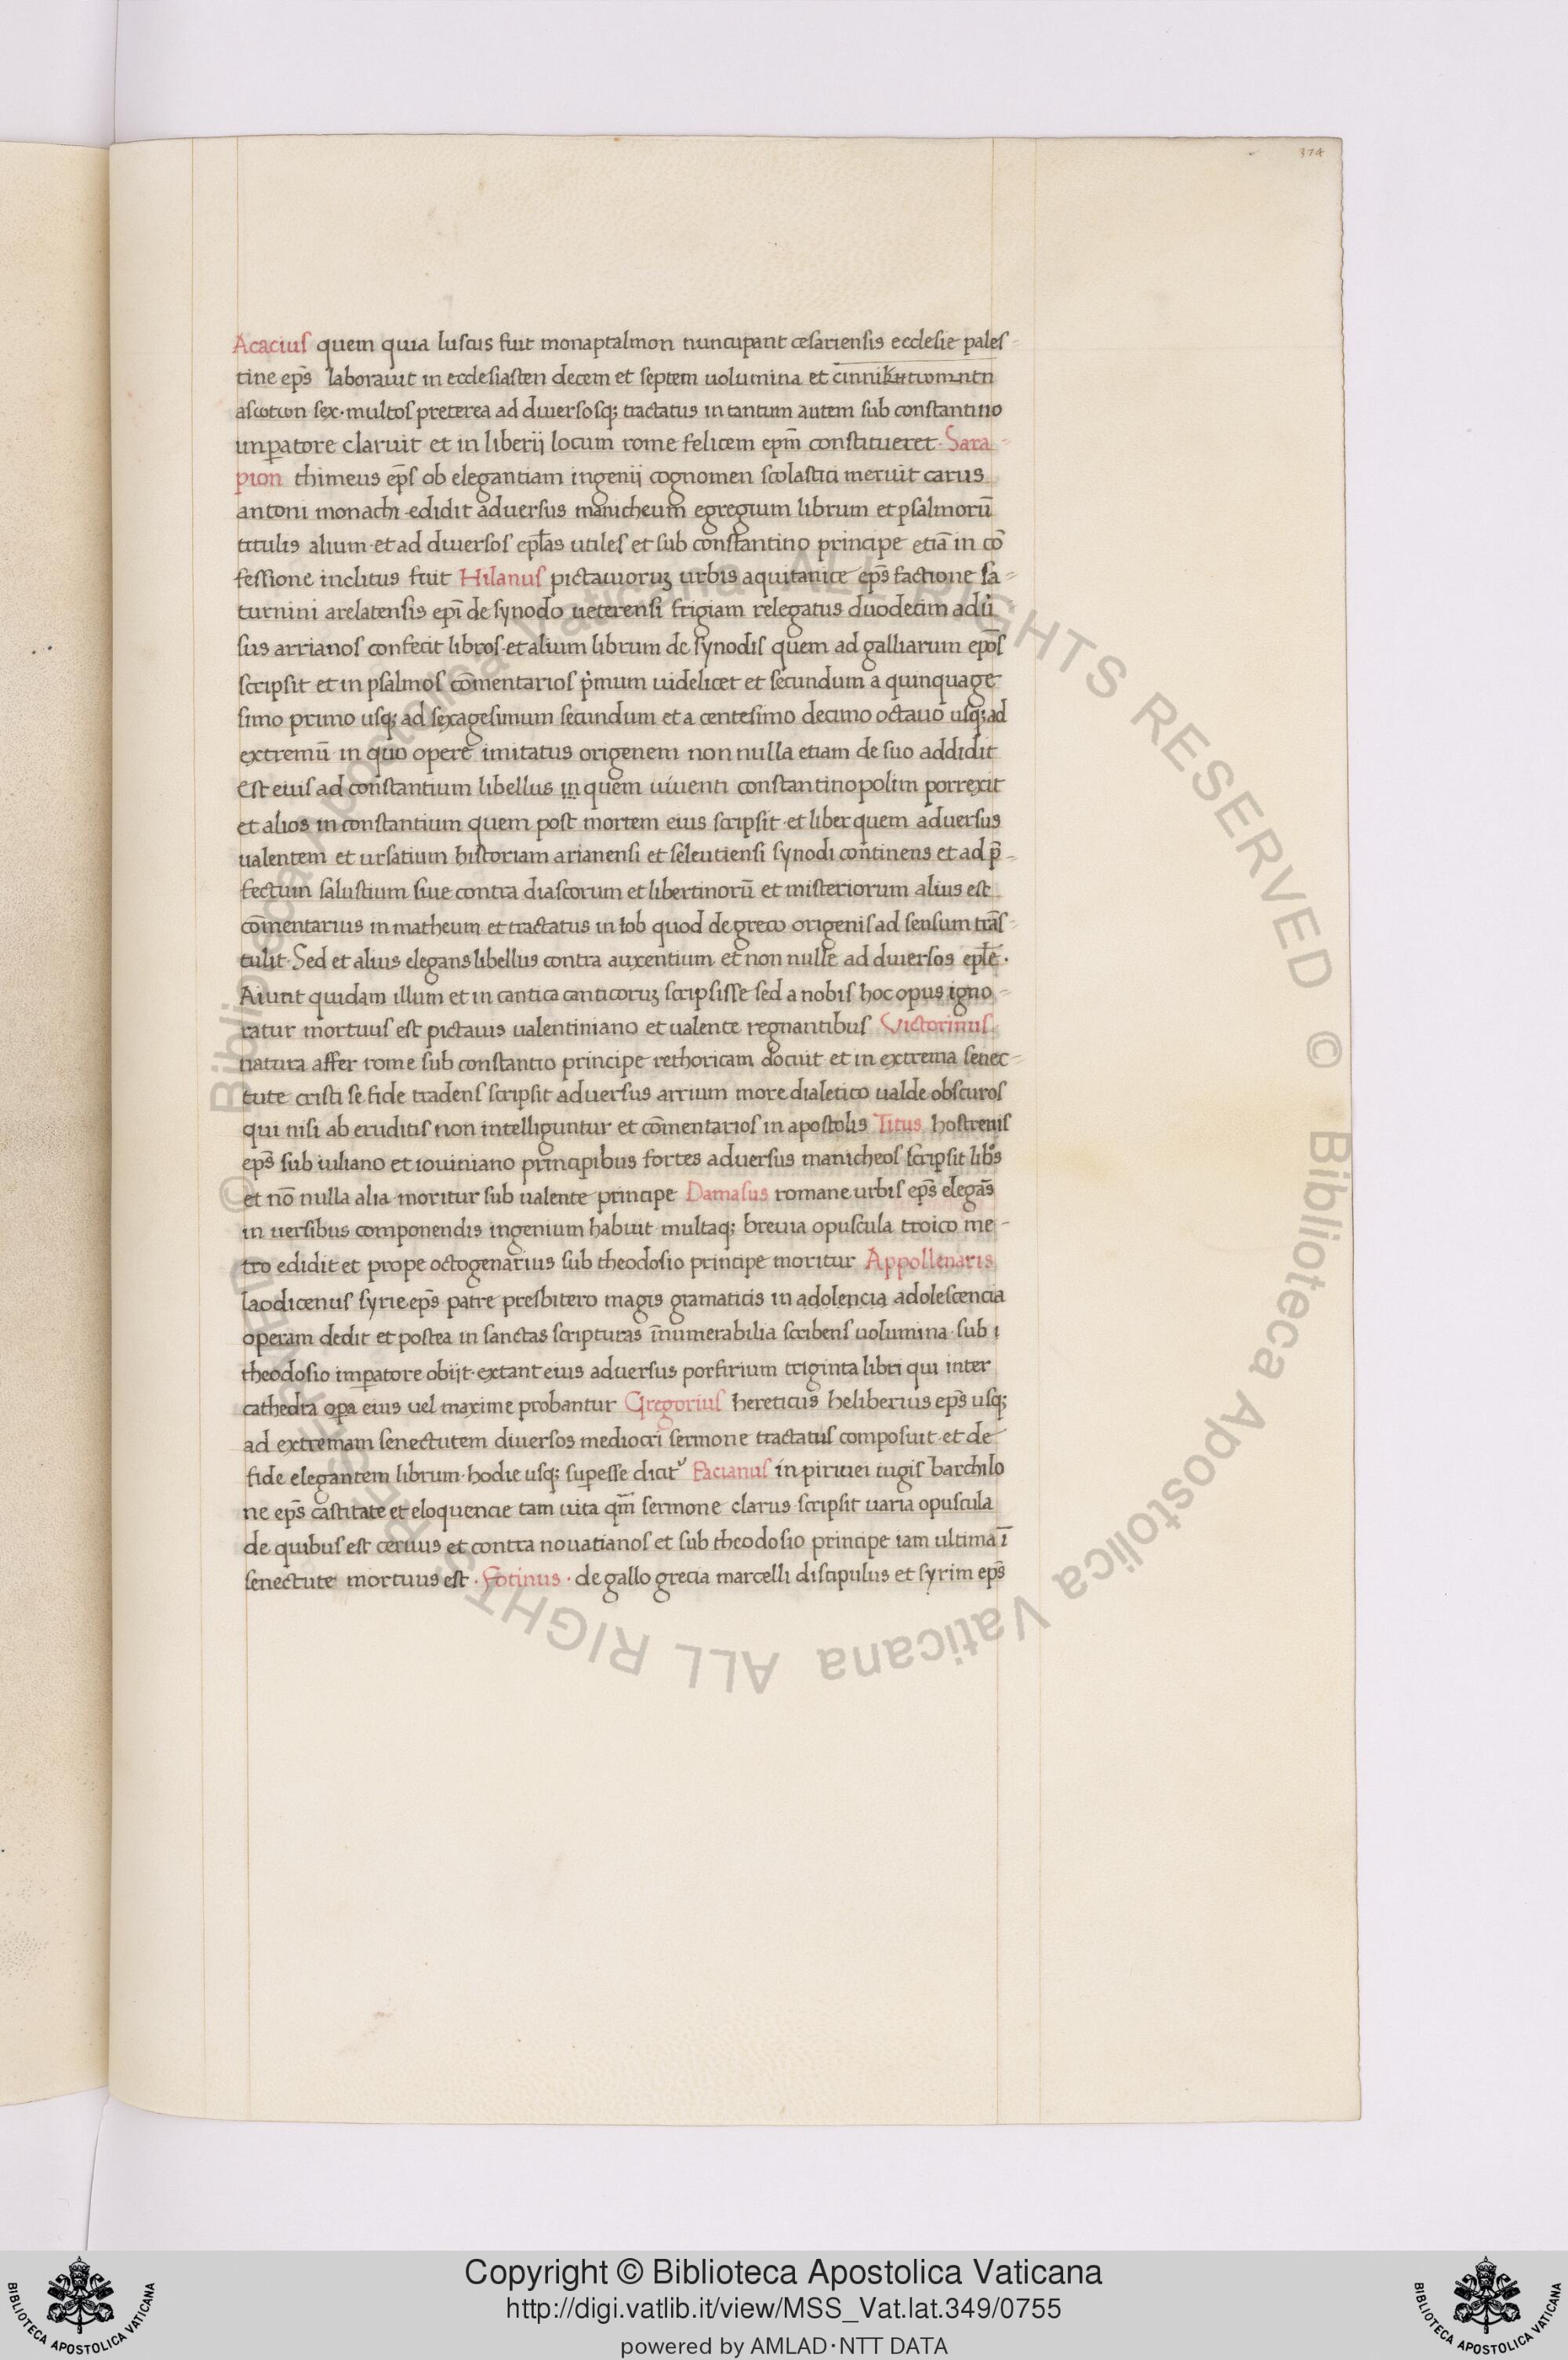 374
Acacius quem quia luscus fuit monaptalmon nuncupant cesariensis ecclesie pales-
tine ep̄s laborauit in ecclesiasten decem et septem uolumina et
ascotωn sex·multos preterea ad diuersosq; tractatus in tantum autem sub constantino
imꝑatore claruit et in liberij locum rome felicem ep̄m constitueret·Sara-
pion thimeus ep̄s ob elegantiam ingenij cognomen scolastici meruit carus
antoni monachi·edidit aduersus manicheum egregium librum et psalmorū
titulis alium·et ad diuersos ep̄las utiles et sub constantino principe etiā in cō
fessione inclitus fuit Hilarius pictauoruꝫ urbis aquitanice ep̄s factione sa-
turnini arelatensis ep̄i de synodo ueterensi frigiam relegatus duodecim adu̓
sus arrianos confecit libros·et alium librum de synodis quem ad galliarum ep̄os
scripsit et in psalmos cōmentarios p̓mum uidelicet et secundum a quinquage
simo primo usq; ad sexagesimum secundum et a centesimo decimo octauo usq; ad
extremū in quo opere imitatus origenem non nulla etiam de suo addidit
Est eius ad constantium libellus in quem uiuenti constantinopolim porrexit
et alios in constantium quem post mortem eius scripsit·et liber quem aduersus
ualentem et ursatium historiam arianensi et seleutiensi synodi continens et ad p̄-
fectum salustium siue contra diascorum et libertinorū et misteriorum alius est
cōmentarius in matheum et tractatus in Iob quod de greco origenis ad sensum trās-
tulit·Sed et alius elegans libellus contra auxentium et non nulle ad diuersos ep̄le·
Aiunt quidam illum et in cantica canticoruꝫ scripsisse sed a nobis hoc opus igno-
ratur mortuus est pictauis ualentiniano et ualente regnantibus Victorinus
natura affer rome sub constantio principe rethoricam docuit et in extrema senec-
tute cristi se fide tradens scripsit aduersus arrium more dialetico ualde obscuros
qui nisi ab eruditis non intelliguntur et cōmentarios in apostolis Titus hostrenis
ep̄s sub iuliano et iouiniano principibus fortes aduersus manicheos scripsit lib̓s
et nō nulla alia·moritur sub ualente principe Damasus romane urbis ep̄s elegās
in uersibus componendis ingenium habuit multaq; breuia opuscula troico me-
tro edidit et prope octogenarius sub theodosio principe moritur Appollenaris
laodicenus syrie ep̄s patre presbitero magis gramaticis in adolencia adolescencia
operam dedit et postea in sanctas scripturas īnumerabilia scribens uolumina·sub i
theodosio imꝑatore obijt·extant eius aduersus porfirium triginta libri qui inter
cathedra oꝑa eius uel maxime probantur Gregorius hereticus heliberius ep̄s usq;
ad extremam senectutem diuersos mediocri sermone tractatus composuit·et de
fide elegantem librum·hodie usq; suꝑesse dicit᷑ Pacianus in piriuei iugis barchilo
ne ep̄s castitate et eloquencie tam uita qm̄ sermone clarus·scripsit uaria opuscula
de quibus est ceruus et contra nouatianos et sub theodosio principe iam ultima ī
senectute mortuus est·Fotinus·de gallo grecia marcelli discipulus et syrim ep̄s
© Biblioteca Apostolica Vaticana ALL RIGHTS RESERVED © Biblioteca Apostolica Vaticana ALL RIGHTS RESERVED
Copyright © Biblioteca Apostolica Vaticana
http://digi.vatlib.it/view/MSS_Vat.lat.349/0755
powered by AMLAD·NTT DATA
BIBLIOTECA APOSTOLICA VATICANA
BIBLIOTECA APOSTOLICA VATICANA